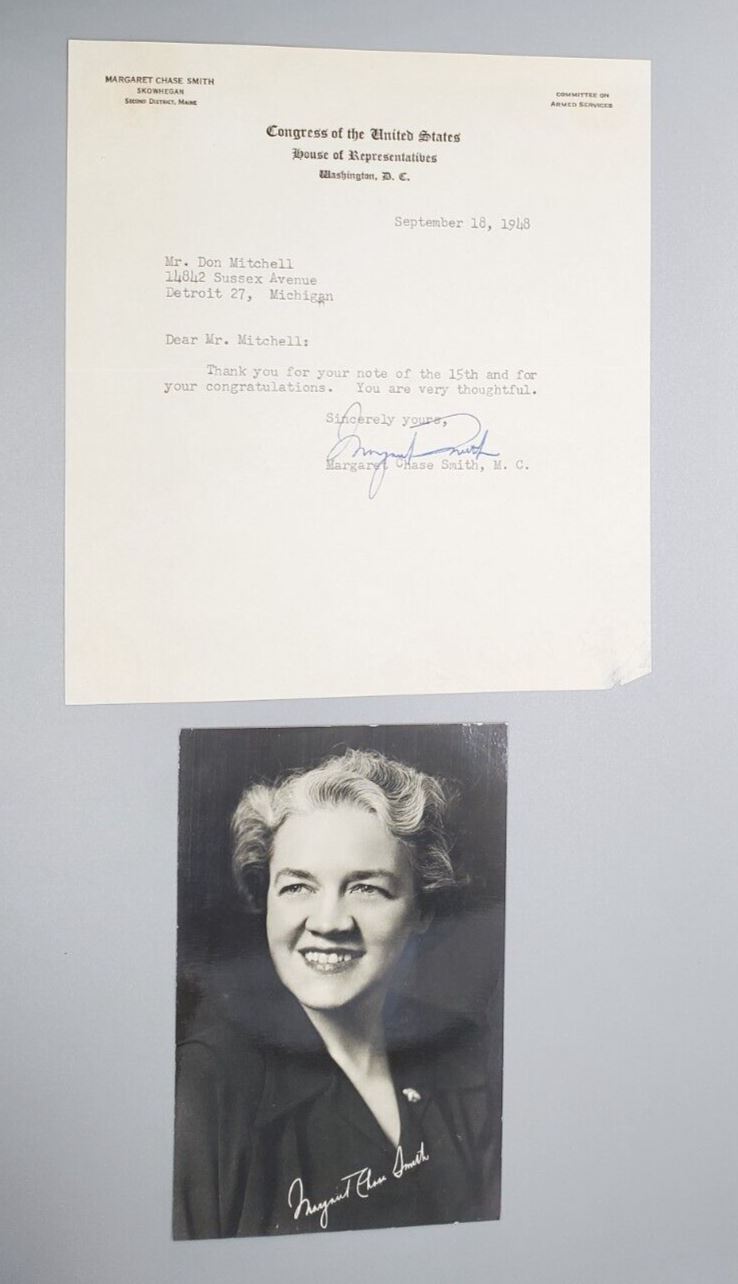 MARGARET CHASE SMITH
SKOWHEGAN
SECOND DISTRICT, MAINE
COMMITTEE ON
ARMED SERVICES
Congress of the United States
House of Representatives
Washington, D. C.
September 18, 1948
Mr. Don Mitchell
14842 Sussex Avenue
Detroit 27, Michigan
Dear Mr. Mitchell:
Thank you for your note of the 15th and for
your congratulations. You are very thoughtful.
Sincerely yours,
Margaret Smith
Margaret Chase Smith, M. C.
Margaret Chase Smith